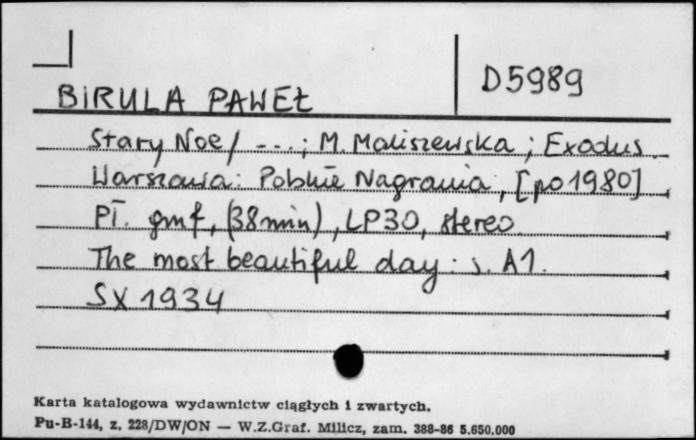 D5989
BIRULA PAWEŁ
Stary Noe / ---; M. Maliszewska; Exodus.
Warszawa: Polskie Nagrania, [po 1980]
Pł. gmf, (38 min), LP30, stereo.
The most beautiful day: s. A1.
SX 1934
Karta katalogowa wydawnictw ciągłych i zwartych.
Pu-B-144, z. 228/DW/ON — W.Z.Graf. Milicz, zam. 388-86 5.650.000